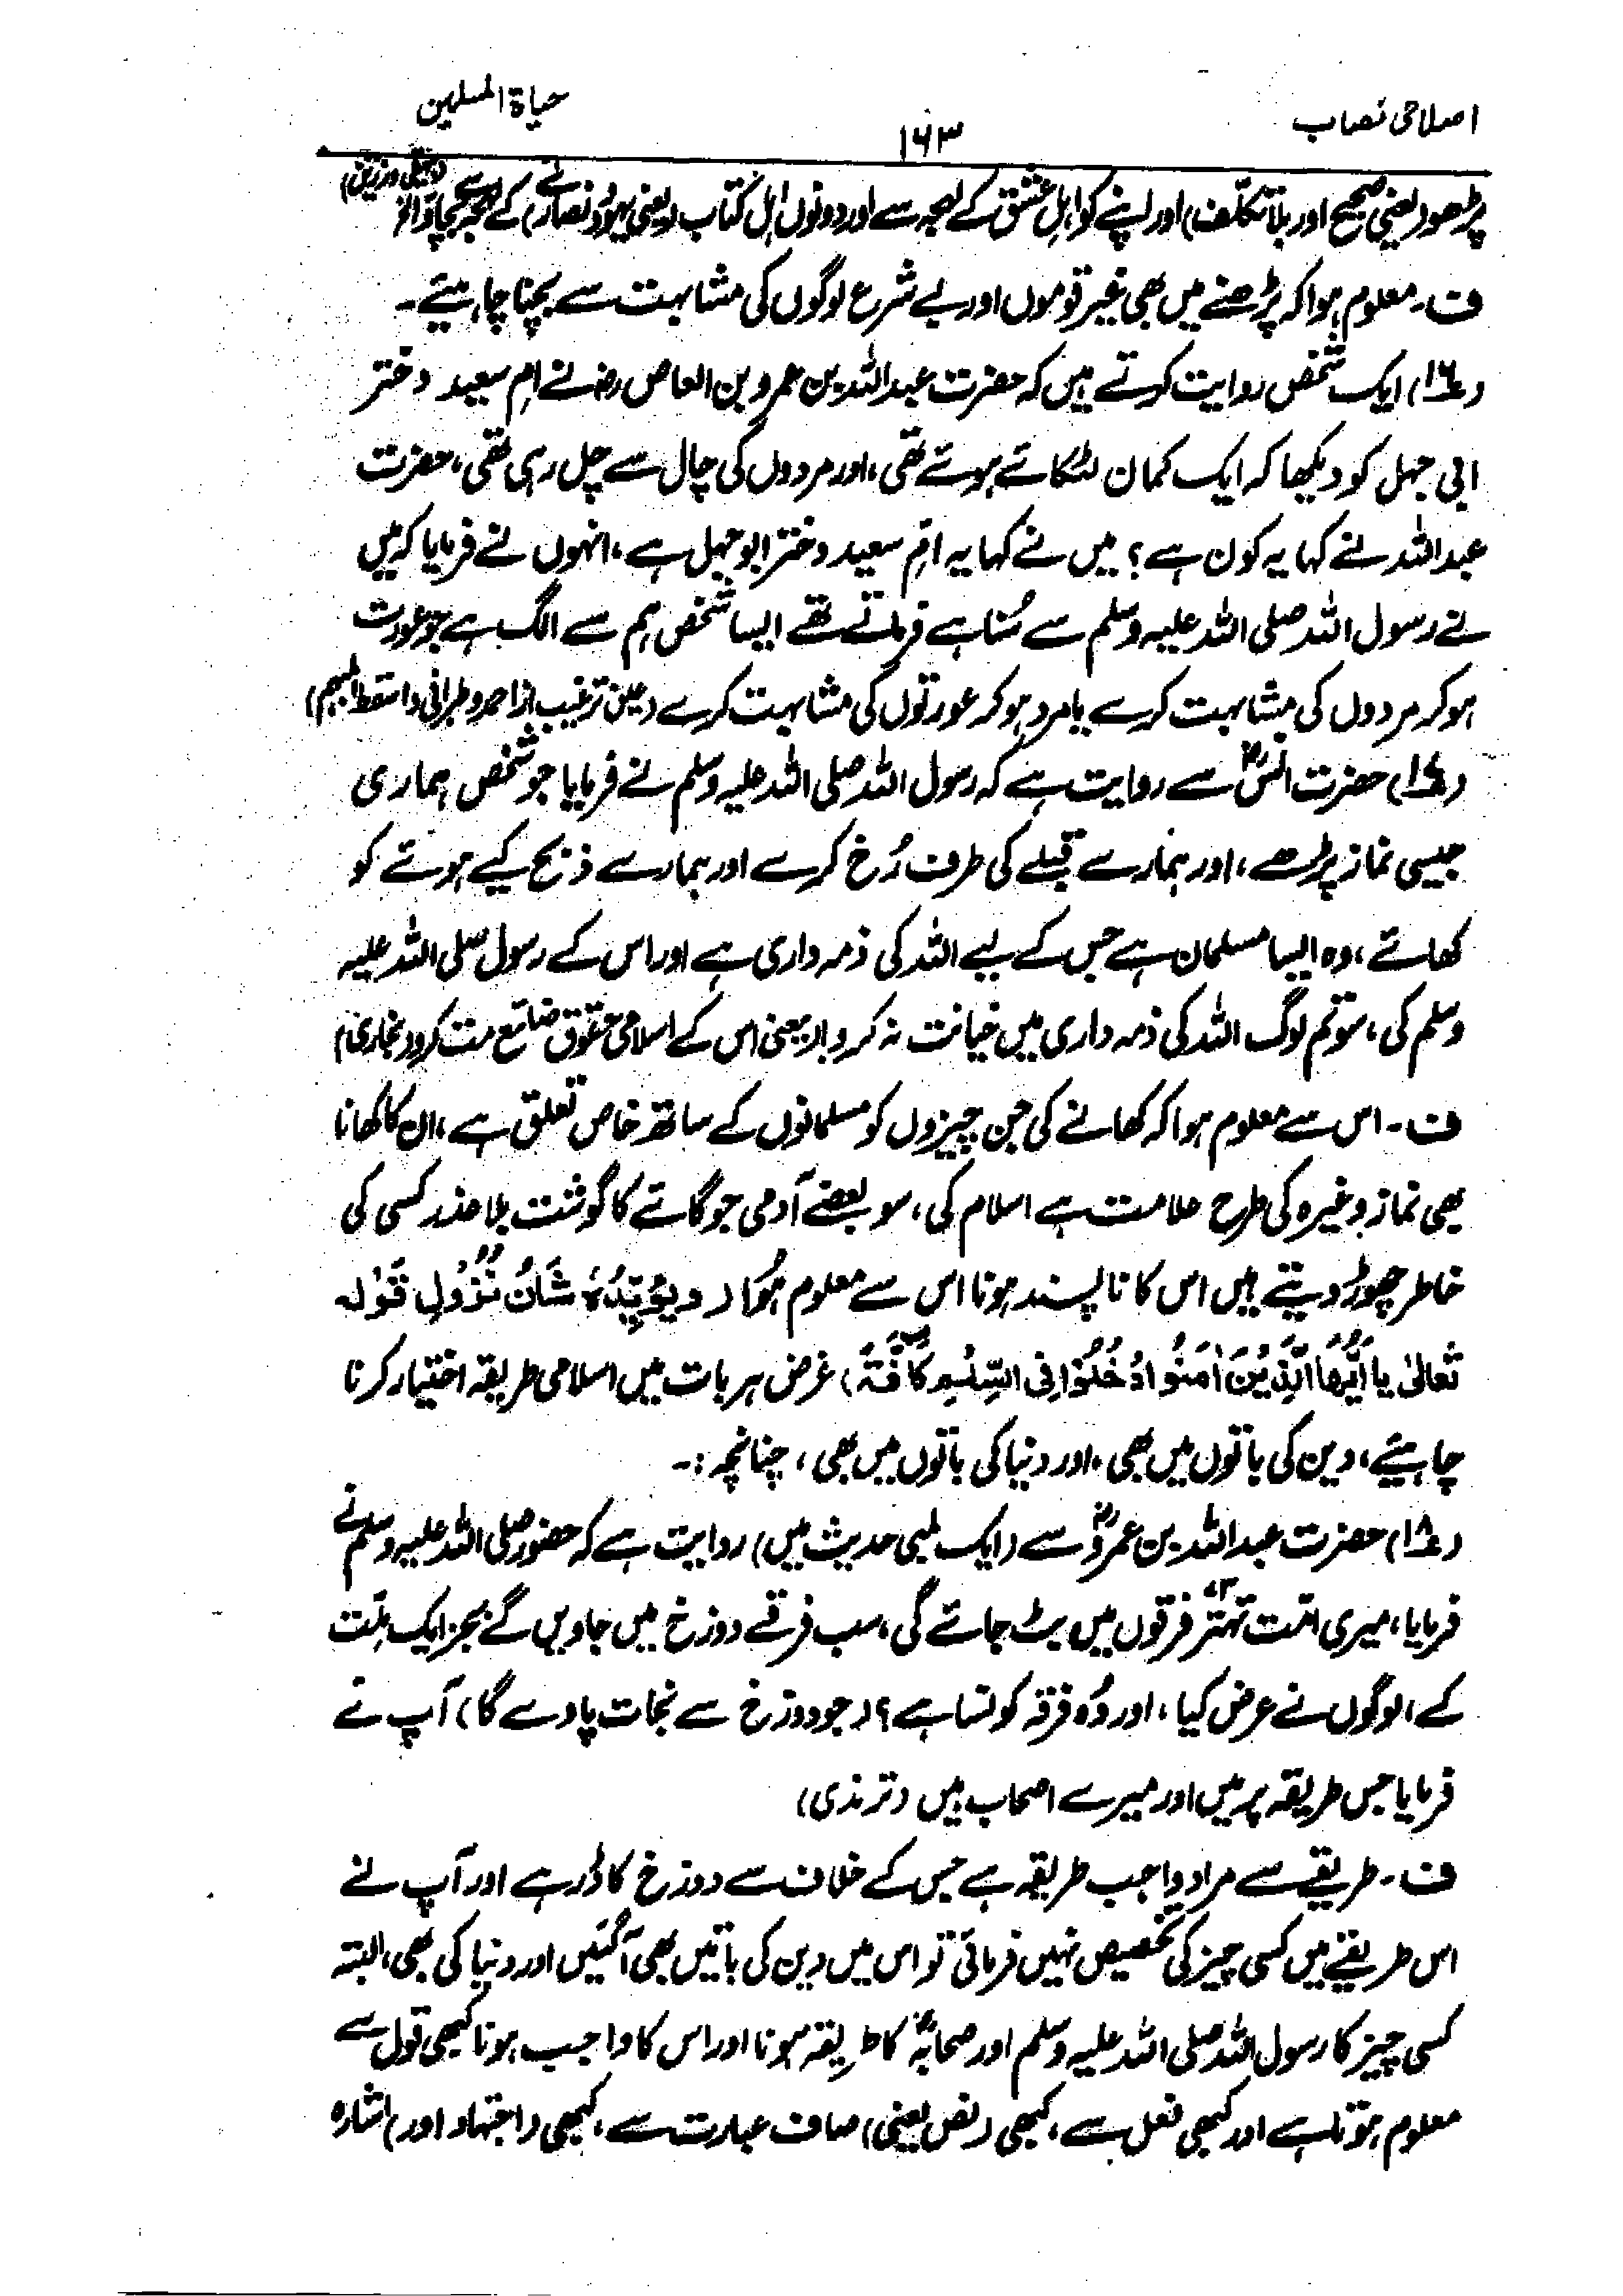 اصلاحی نصاب
۱۶۳
حیاۃ المسلمین
پڑھو (یعنی صحیح اور بلا تکلّف) اور اپنے کو اہلِ عشق کے لہجہ سے اور دونوں اہل کتاب (یعنی یہود و نصاریٰ) کے لہجہ سے بچاؤ الخ
ف۔ معلوم ہوا کہ پڑھنے میں بھی غیر قوموں اور بے شرع لوگوں کی مشابہت سے بچنا چاہیئے۔
(۱۶) ایک شخص روایت کرتے ہیں کہ حضرت عبداللہ بن عمرو بن العاص رض نے امِ سعید دختر
ابی جہل کو دیکھا کہ ایک کمان لٹکائے ہوئے تھی، اور مردوں کی چال سے چل رہی تھی، حضرت
عبداللہ نے کہا یہ کون ہے؟ میں نے کہا یہ امِّ سعید دختر ابوجہل ہے، انہوں نے فرمایا کہ میں
نے رسول اللہ صلی اللہ علیہ وسلم سے سُنا ہے فرماتے تھے ایسا شخص ہم سے الگ ہے جو عورت
ہو کر مردوں کی مشابہت کرے یا مرد ہو کر عورتوں کی مشابہت کرے (عین ترغیب از احمد و طبرانی واسقط المبہم)
(۱۷) حضرت انسؓ سے روایت ہے کہ رسول اللہ صلی اللہ علیہ وسلم نے فرمایا جو شخص ہماری
جیسی نماز پڑھے، اور ہمارے قبلے کی طرف رُخ کرے اور ہمارے ذبح کیے ہوئے کو
کھائے، وہ ایسا مسلمان ہے جس کے لیے اللہ کی ذمہ داری ہے اور اس کے رسول صلی اللہ علیہ
وسلم کی، سو تم لوگ اللہ کی ذمہ داری میں خیانت نہ کرو (یعنی اس کے اسلامی حقوق ضائع مت کرو (بخاری)
ف۔ اس سے معلوم ہوا کہ کھانے کی جن چیزوں کو مسلمانوں کے ساتھ خاص تعلق ہے، ان کا کھانا
بھی نماز وغیرہ کی طرح علامت ہے اسلام کی، سو بعضے آدمی جو گائے کا گوشت بلا عذر کسی کی
خاطر چھوڑ دیتے ہیں اس کا ناپسند ہونا اس سے معلوم ہُوا (وَيُؤَيِّدُهٗ شَانُ نُزُوْلِ قَوْلِه
تَعَالىٰ يا اَيُّهَا الَّذِيْنَ اٰمَنُوا ادْخُلُوْا فِى السِّلْمِ كَافَّةً) غرض ہر بات میں اسلامی طریقہ اختیار کرنا
چاہیئے، دین کی باتوں میں بھی، اور دنیا کی باتوں میں بھی، چنانچہ:۔
(۱۸) حضرت عبداللہ بن عمروؓ سے (ایک لمبی حدیث میں) روایت ہے کہ حضور صلی اللہ علیہ وسلم نے
فرمایا، میری امّت تہتّر ۷۳ فرقوں میں بٹ جائے گی، سب فرقے دوزخ میں جاویں گے بجز ایک مِلّت
کے، لوگوں نے عرض کیا، اور وُہ فرقہ کونسا ہے؟ (جو دوزخ سے نجات پاوے گا) آپ نے
فرمایا جس طریقہ پر میں اور میرے اصحاب ہیں (ترمذی)
ف۔ طریقے سے مراد واجب طریقہ ہے جس کے خلاف سے دوزخ کا ڈر ہے اور آپ نے
اس طریقے میں کسی چیز کی تخصیص نہیں فرمائی تو اس میں دین کی باتیں بھی آگئیں اور دنیا کی بھی، البتہ
کسی چیز کا رسول اللہ صلی اللہ علیہ وسلم اور صحابہؓ کا طریقہ ہونا اور اس کا واجب ہونا کبھی قول سے
معلوم ہوتا ہے اور کبھی فعل سے، کبھی (نص یعنی) صاف عبارت سے، کبھی (اجتہاد اور) اشارہ